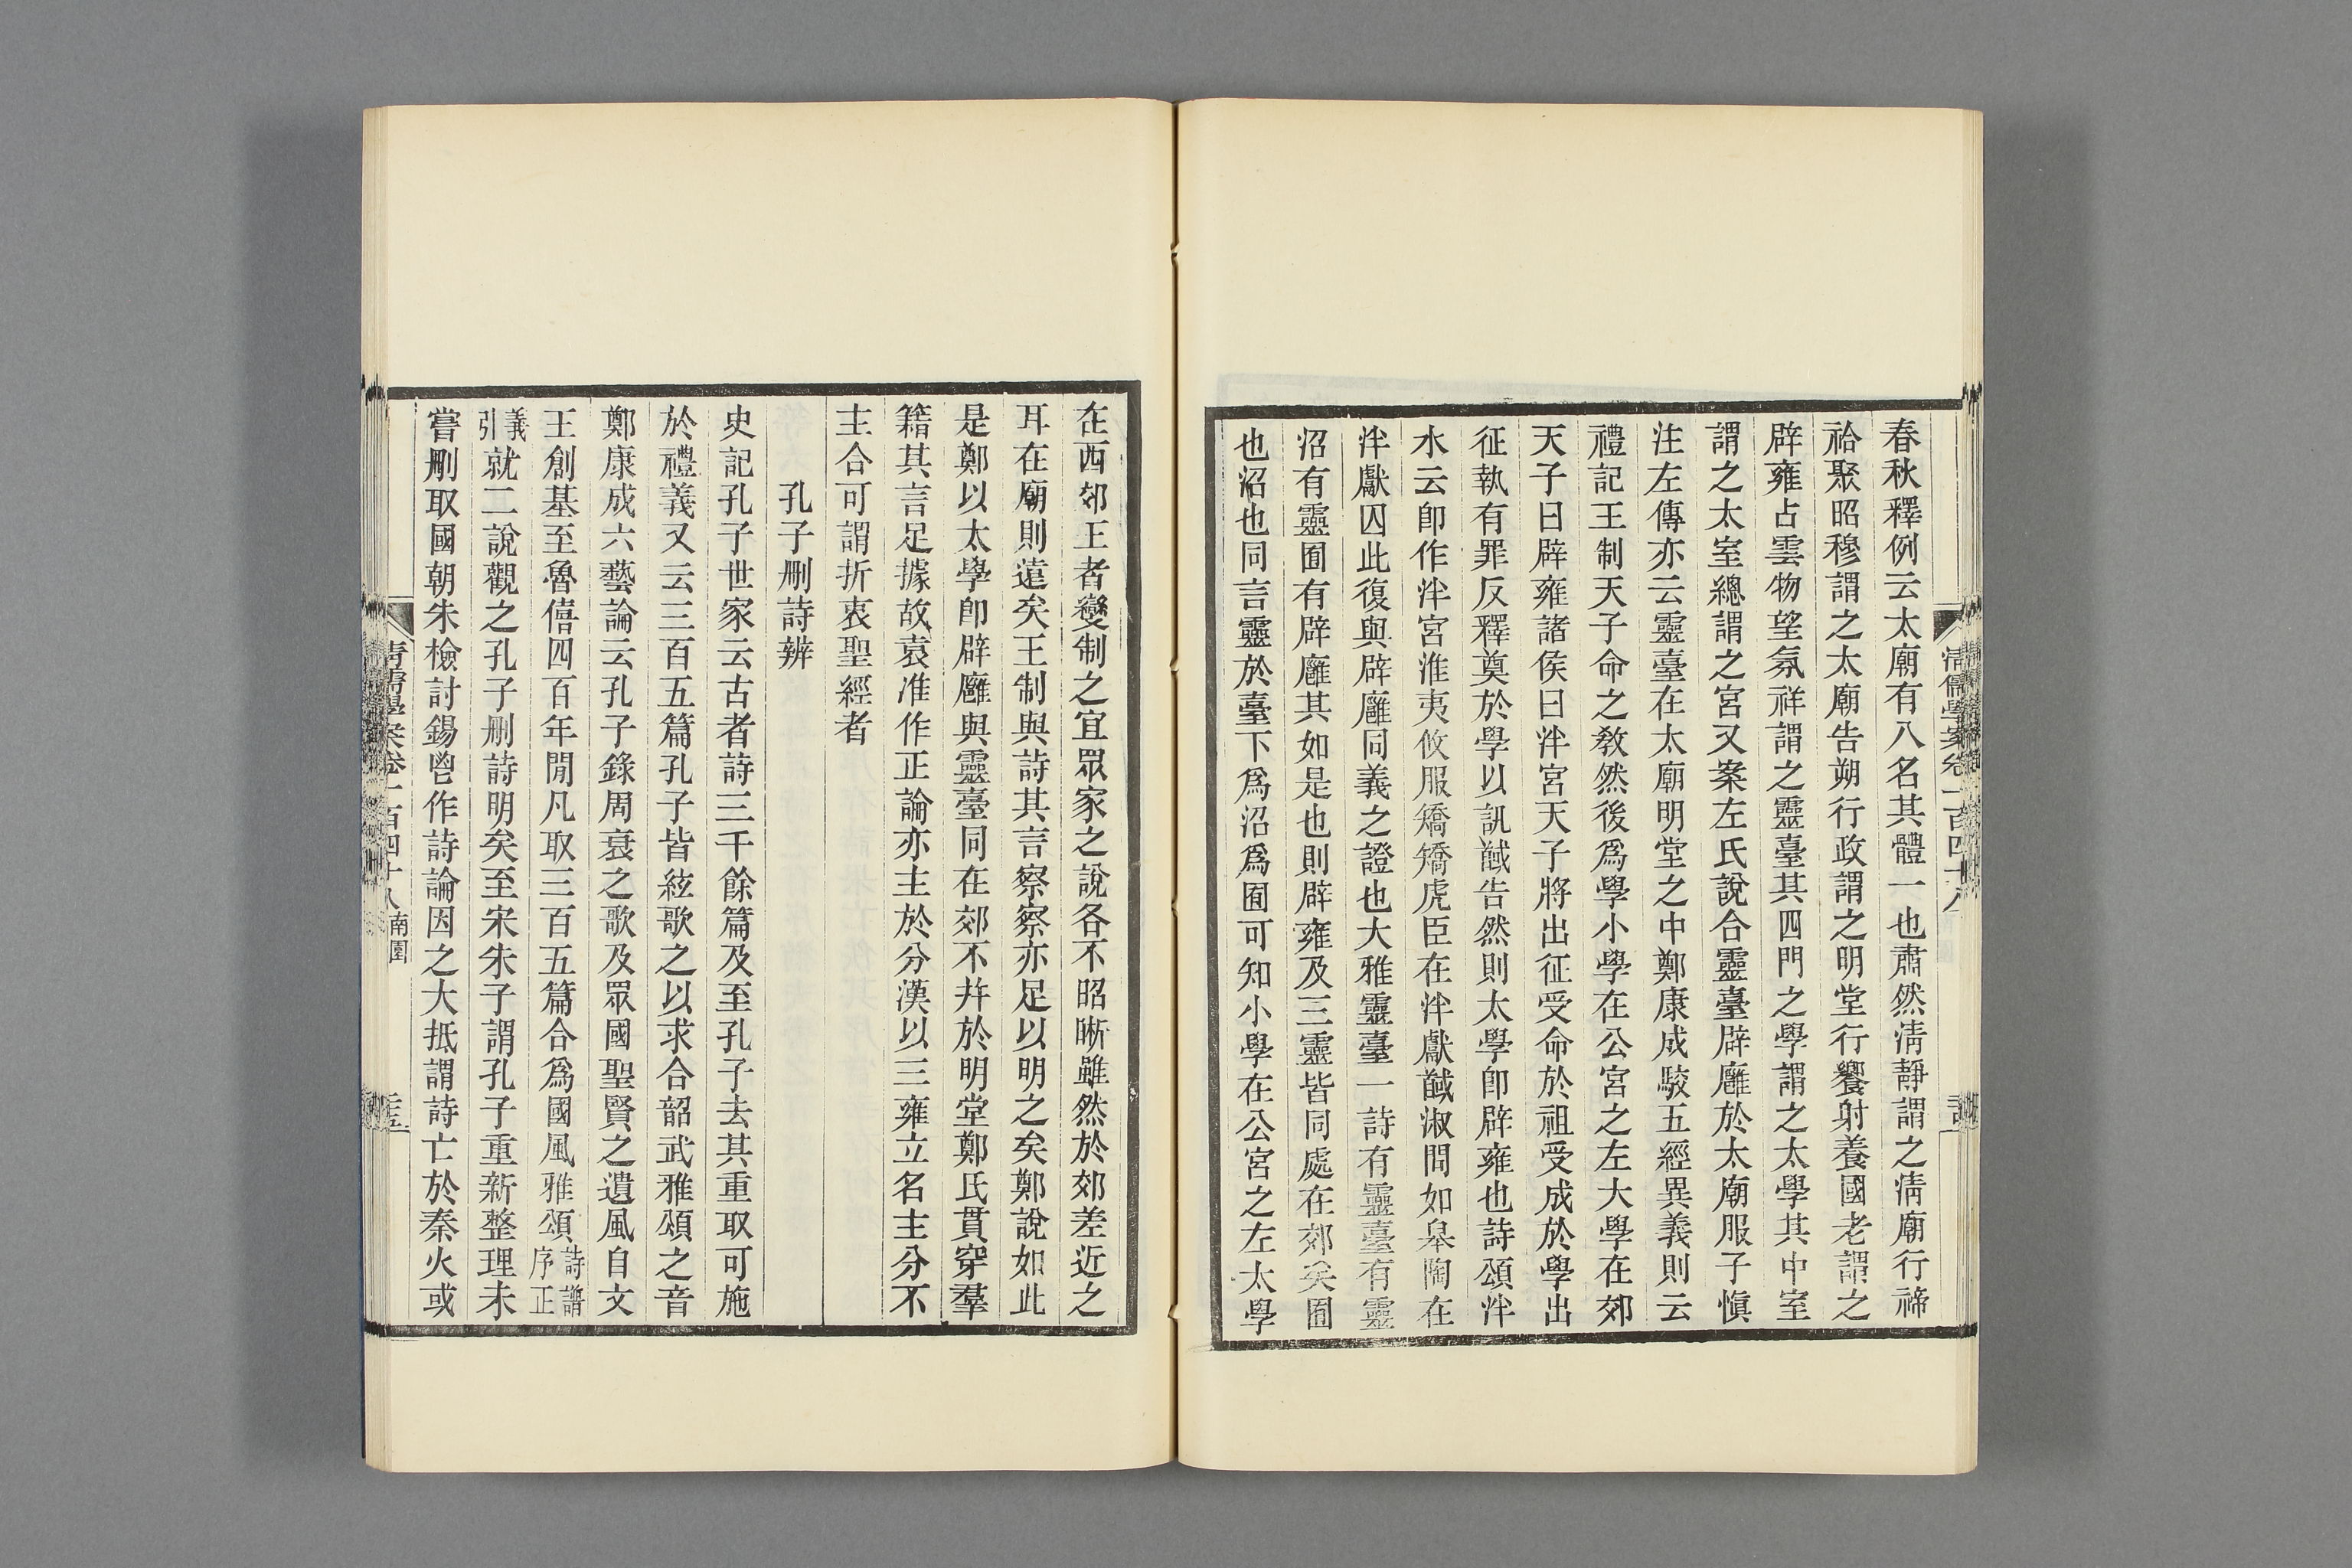 春秋釋例云太廟有八名其體一也肅然淸靜謂之淸廟行禘
祫聚昭穆謂之太廟告朔行政謂之明堂行饗射養國老謂之
辟雍占雲物望氛祥謂之靈臺其四門之學謂之太學其中室
謂之太室總謂之宮又案左氏說合靈臺辟廱於太廟服子愼
注左傳亦云靈臺在太廟明堂之中鄭康成駮五經異義則云
禮記王制天子命之敎然後爲學小學在公宮之左大學在郊
天子曰辟雍諸侯曰泮宮天子將出征受命於祖受成於學出
征執有罪反釋奠於學以訊馘告然則太學卽辟雍也詩頌泮
水云卽作泮宮淮夷攸服矯矯虎臣在泮獻馘淑問如皋陶在
泮獻囚此復與辟廱同義之證也大雅靈臺一詩有靈臺有靈
沼有靈囿有辟廱其如是也則辟雍及三靈皆同處在郊矣囿
也沼也同言靈於臺下爲沼爲囿可知小學在公宮之左太學
在西郊王者變制之宜眾家之說各不昭晰雖然於郊差近之
耳在廟則遠矣王制與詩其言察察亦足以明之矣鄭說如此
是鄭以太學卽辟廱與靈臺同在郊不幷於明堂鄭氏貫穿羣
籍其言足據故袁准作正論亦主於分漢以三雍立名主分不
主合可謂折衷聖經者
孔子刪詩辨
史記孔子世家云古者詩三千餘篇及至孔子去其重取可施
於禮義又云三百五篇孔子皆絃歌之以求合韶武雅頌之音
鄭康成六藝論云孔子錄周衰之歌及眾國聖賢之遺風自文
王創基至魯僖四百年閒凡取三百五篇合爲國風雅頌詩譜序正
義引就二說觀之孔子刪詩明矣至宋朱子謂孔子重新整理未
嘗刪取國朝朱檢討錫鬯作詩論因之大抵謂詩亡於秦火或
淸儒學案卷一百四十八 南園